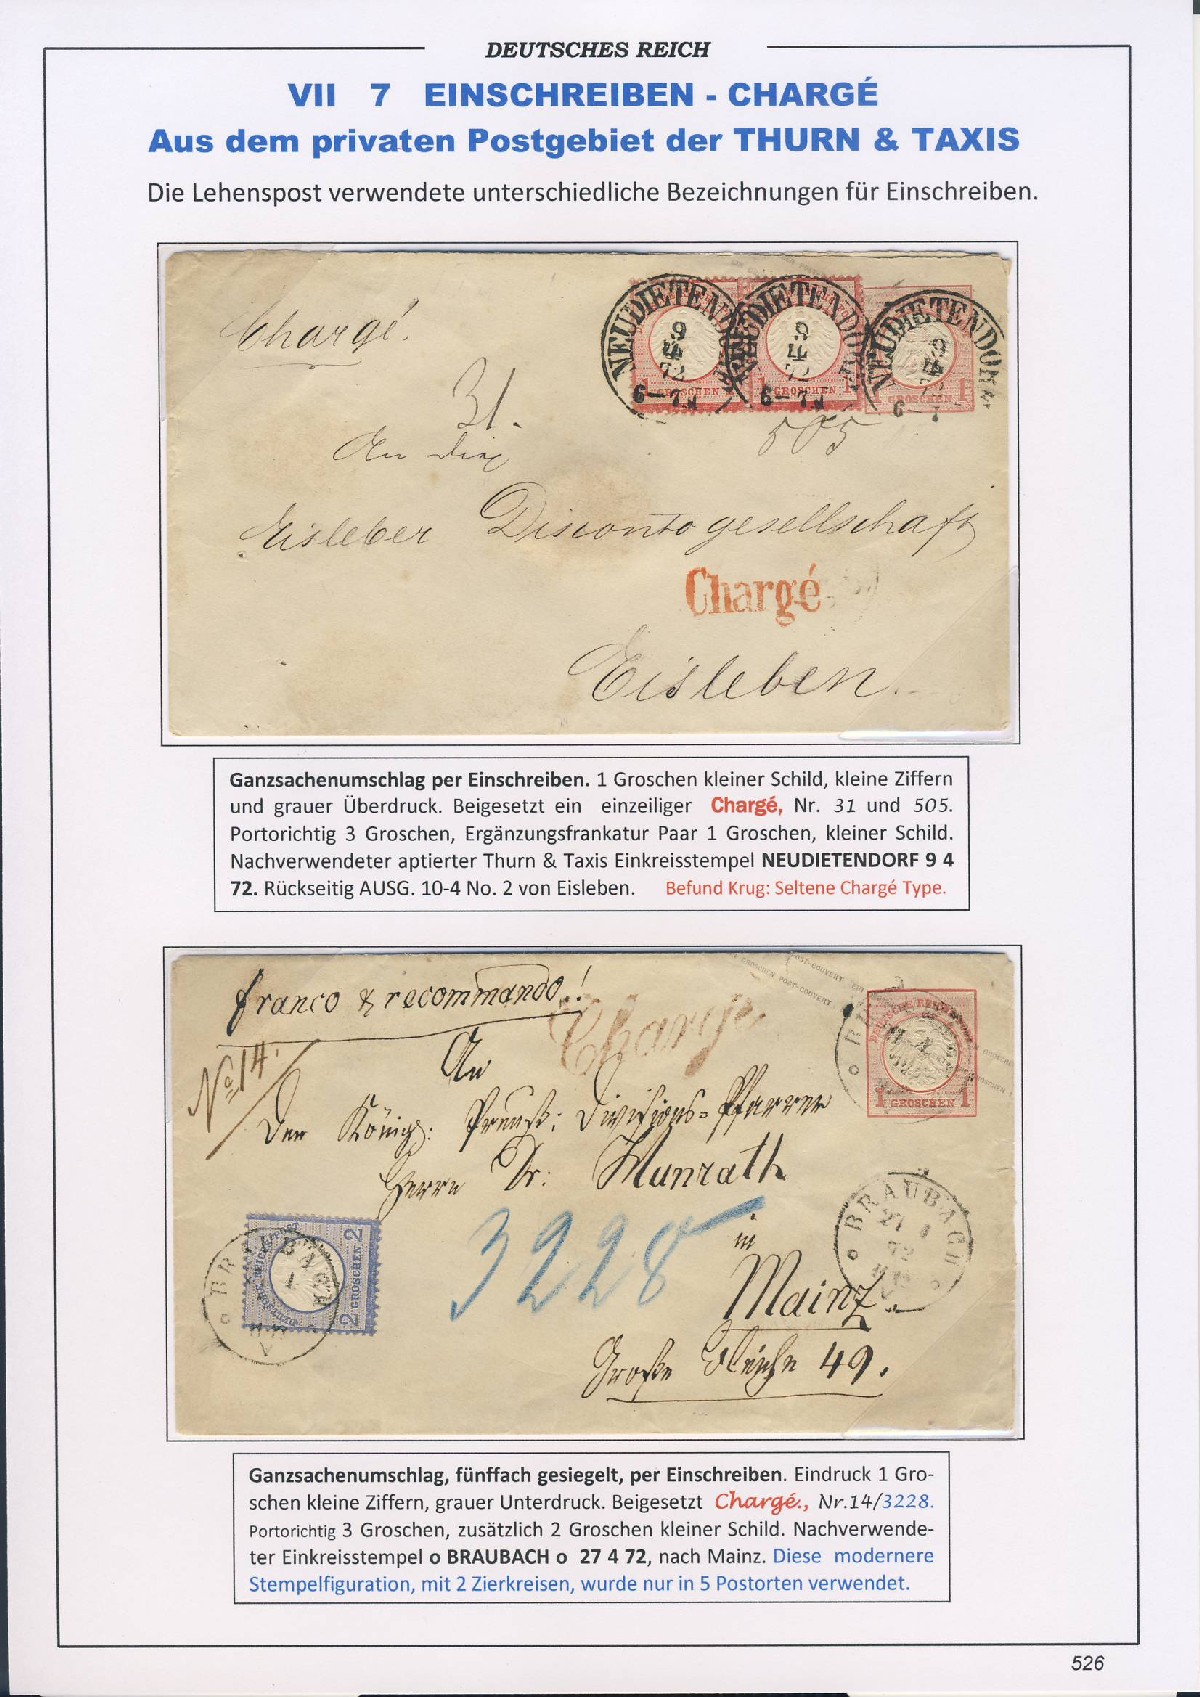 DEUTSCHES REICH
VII 7 EINSCHREIBEN - CHARGÉ
Aus dem privaten Postgebiet der THURN & TAXIS
Die Lehenspost verwendete unterschiedliche Bezeichnungen für Einschreiben.
Chargé.
NEUDIETENDORF 9 4 72 6-7
NEUDIETENDORF 9 4 72 6-7
NEUDIETENDORF 9 4 72 6-7
1 GROSCHEN 1
1 GROSCHEN 1
GROSCHEN 1
31.
505
An die
Eisleber Discontogesellschaft
Chargé
Eisleben.
Ganzsachenumschlag per Einschreiben. 1 Groschen kleiner Schild, kleine Ziffern
und grauer Überdruck. Beigesetzt ein einzeiliger Chargé, Nr. 31 und 505.
Portorichtig 3 Groschen, Ergänzungsfrankatur Paar 1 Groschen, kleiner Schild.
Nachverwendeter aptierter Thurn & Taxis Einkreisstempel NEUDIETENDORF 9 4
72. Rückseitig AUSG. 10-4 No. 2 von Eisleben. Befund Krug: Seltene Chargé Type.
franco & recommando!
Chargé.
No 14.
1 GROSCHEN 1
An
Den Königl: Preuß: Divisions-Pfarrer
Herrn Dr: Munrath
BRAUBACH
27 4
72
3228
in
Mainz
2 GROSCHEN 2
Große Bleiche 49.
Ganzsachenumschlag, fünffach gesiegelt, per Einschreiben. Eindruck 1 Gro-
schen kleine Ziffern, grauer Unterdruck. Beigesetzt Chargé., Nr.14/3228.
Portorichtig 3 Groschen, zusätzlich 2 Groschen kleiner Schild. Nachverwende-
ter Einkreisstempel o BRAUBACH o 27 4 72, nach Mainz. Diese modernere
Stempelfiguration, mit 2 Zierkreisen, wurde nur in 5 Postorten verwendet.
526